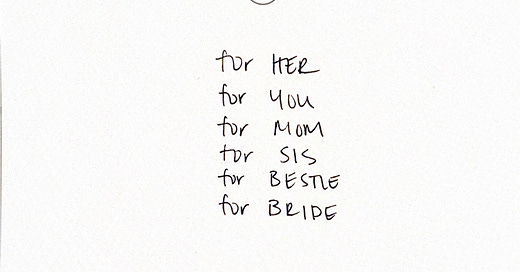 for HER
for YOU
for MOM
for SIS
for BESTIE
for BRIDE